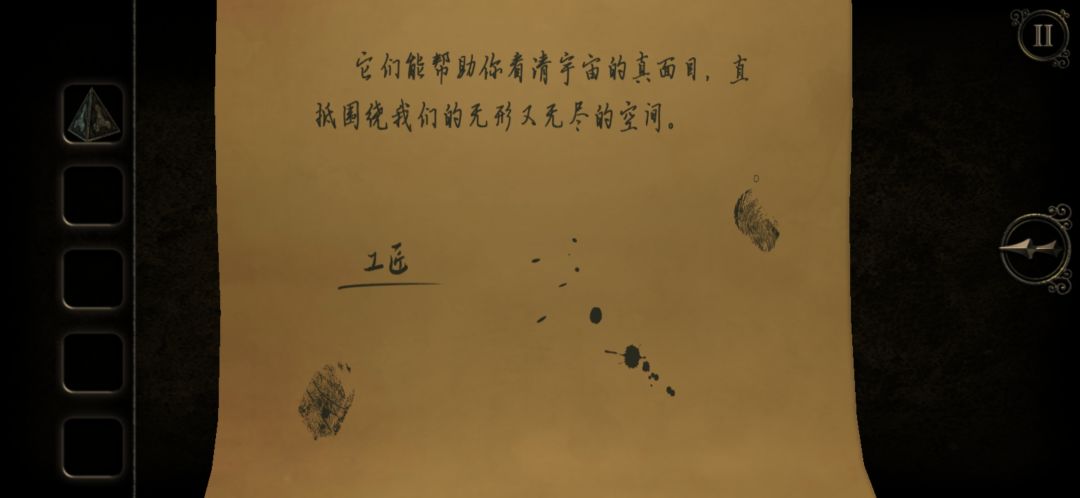 它们能帮助你看清宇宙的真面目，直
抵围绕我们的无形又无尽的空间。
工匠